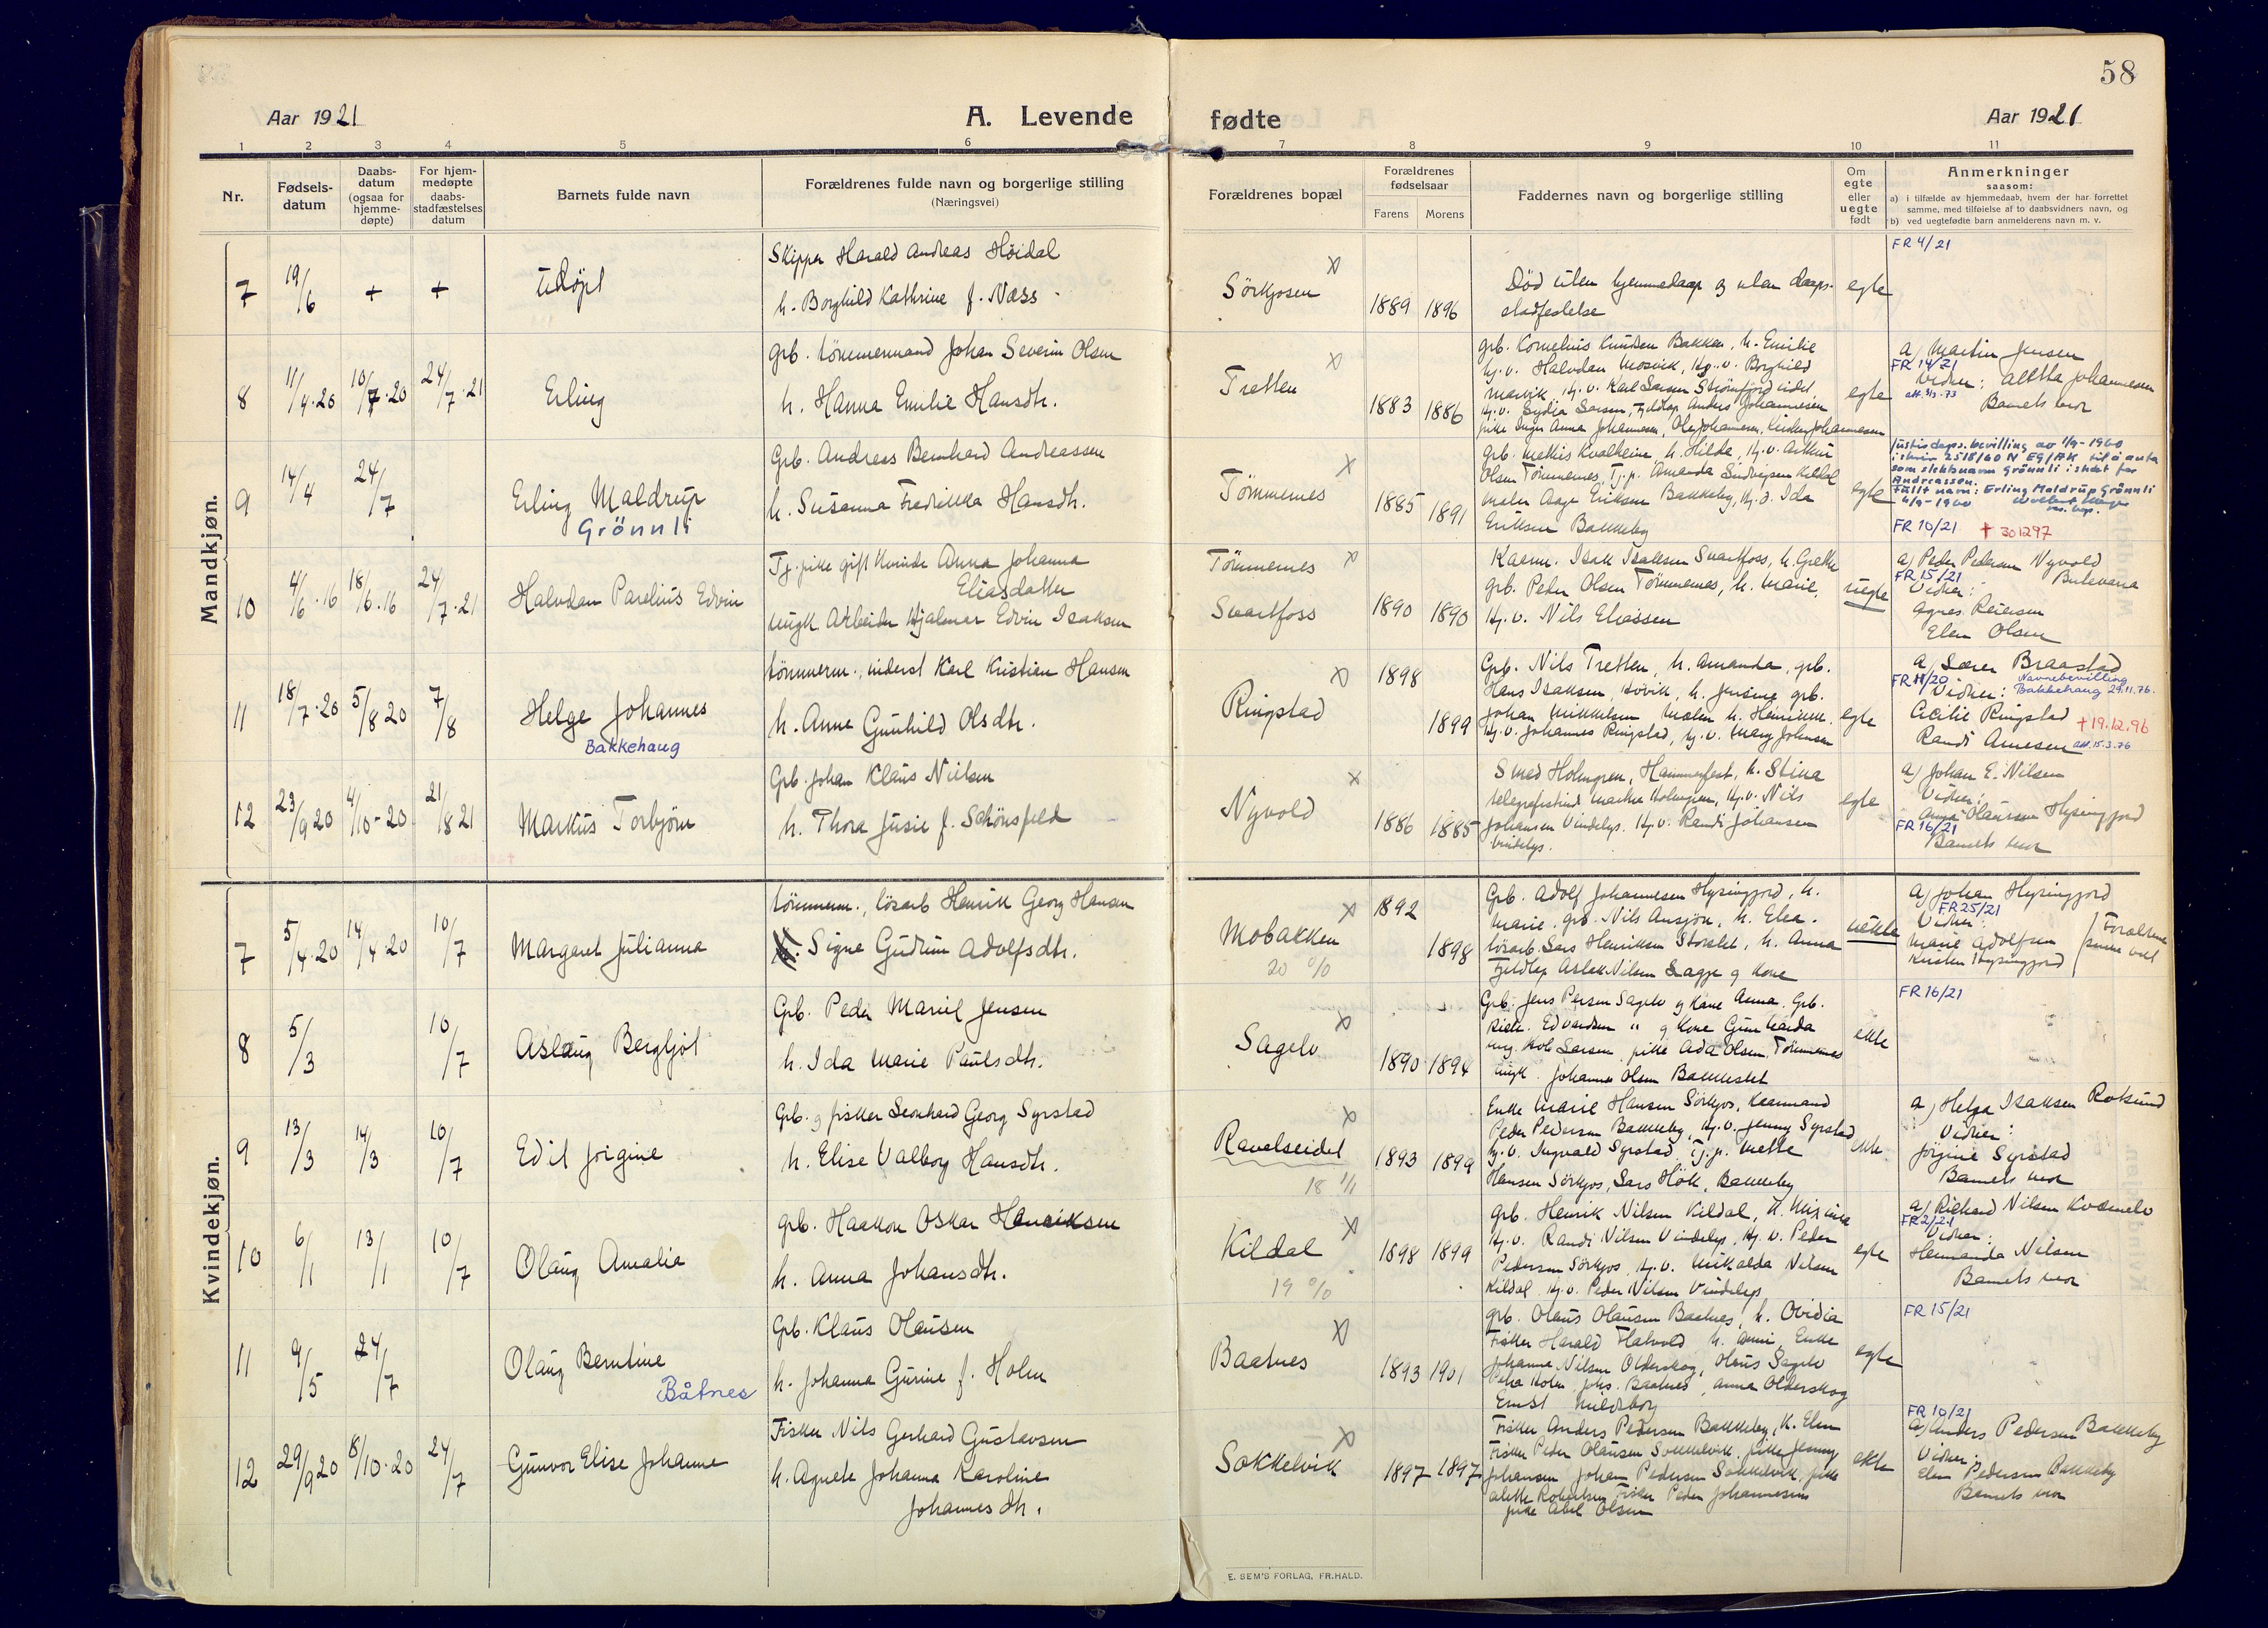 58
Aar 1921
A. Levende
fødte
Aar 1921
1 2 3 4 5 6 7 8 9 10 11
Nr.
Fødsels-
datum
Daabs-
datum
(ogsaa for
hjemme-
døpte)
For hjem-
medøpte
daabs-
stadfæstelses
datum
Barnets fulde navn
Forældrenes fulde navn og borgerlige stilling
(Næringsvei)
Forældrenes bopæl
Forældrenes
fødselsaar
Farens Morens
Faddernes navn og borgerlige stilling
Om
egte
eller
uegte
født
Anmerkninger
saasom:
a) i tilfælde av hjemmedaab, hvem der har forrettet
samme, med tilføielse af to daabsvidners navn, og
b) ved uegtefødte barn anmelderens navn m. v.
Mandkjøn.
7 19/6 + + Udøpt
Skipper Harald Andreas Høidal
h. Borghild Kathrine f. Næss
Sörkjosen 1889 1896
Død uten hjemmedaap og uten daaps-
stadfestelse
egte
FR 4/21
8 11/4·20 10/7·20 24/7·21 Erling
Grb. tömmermand Johan Severin Olsen
h. Hanna Emilie Hansdtr.
Tretten 1883 1886
grb. Kornelius Knudsen Bakken, h. Emilie
Uj. v. Halvdan Mosvik, Uj. v. Borghild
Mosvik, Uj. v. Karl Larsen Strömfjord inderst
Uj. v. Lydia Larsen, Fjeldlap Anders Johannesen
pike Inger Anna Johannesen, Ole Johannesen, Kirsten Johannesen
egte
a) Martin Jensen
FR 14/21
Vidner: Aletta Johannesen
Barnets mor
9 14/4 24/7 Erling Maldrup
Grönnli
Grb. Andreas Bernhard Andreassen
h. Susanna Fredrikka Hansdtr.
Tömmernes 1885 1891
grb. Mathis Kvalheim, h. Hilda, Uj. v. Arthur
Olsen Tömmernes, Tj. p. Amanda Kildal
maler Aage Eriksen Bakkeby, Uj. v. Ida
Eriksen Bakkeby
egte
Justisdeps. bevilling av 1/9-1960
i skriv 2518/60 N EG/AK til å anta
som slektsnavn Grönnli i stedet for
Andreassen.
Fullt navn: Erling Maldrup Grönnli
6/9-1960
FR 10/21 + 301297
10 4/6·16 18/6·16 24/7·21 Halvdan Parelius Edvin
Tj. pike gift kvinde Anna Johanna
Eliasdatter
ungk. Arbeider Hjalmar Edvin Isaksen
Tömmernes
Svartfoss 1890 1890
Kaarm. Isak Isaksen Svartfoss, h. Grethe
grb. Peder Olsen Tömmernes, h. Marie,
Uj. v. Nils Eliassen
uegte
a) Peder Pedersen Nyvold
FR 15/21
Vidner:
Agnes Reiersen
Elen Olsen
11 18/7·20 5/8 20 7/8 Helge Johannes
Bakkehaug
tömmerm., inderst Karl Kristian Hansen
h. Anne Gunhild Olsdtr.
Ringstad 1898 1899
Grb. Nils Tretten, h. Amanda, grb.
Hans Isaksen, Hovik, h. Jensine grb.
Johan Mikkelsen Mælen h. Henrikke.
Uj. v. Johannes Ringstad, Uj. v. Mary Johnsen
egte
a) Lærer Braastad
FR 11/20 Navnebevilling
Vidner: Bakkehaug 29.11.76.
Cecilie Ringstad
+19.12.96
Randi Arnesen att. 15.3.76
12 23/9 20 4/10-20 21/8 21 Markus Torbjørn
Grb. Johan Klaus Nielsen
h. Thora Jusie f. Schönsfeld
Nyvold 1886 1885
Smed Holmgren, Hammerfest, h. Stina
telegrafistinde Marthe Holmgren, Uj. v. Nils
Johansen Vindelys. Uj. v. Randi Johansen
Vindelys.
egte
a) Johan E. Nilsen
Vidner:
Anna Olaussen Hysingjord
FR 16/21
Barnets mor
Kvindekjøn.
7 5/4·20 14/4·20 10/7 Margaret Julianna
tömmerm., lösarb Henrik Georg Hansen
Signe Gudrun Adolfsdtr.
Mobakken 1892 1898
20 %
Grb. Adolf Johannesen Hysingjord, h.
Marie, grb. Nils Ansjön, h. Elea.
lösarb. Lars Henriksen Storslet, h. Anna
Fjeldlap Aslak Nilsen Sagge og kone
uekte
a) Johan Hysingjord
FR25/21
Vidner:
Marie Adolfsen
Kirsten Hysingjord
Forældrene
samme sted
8 5/3 10/7 Aslaug Bergljot
Grb. Peder Mariel Jensen
h. Ida Marie Paulsdtr.
Sagelv 1890 1894
Grb. Jens Persen Sagelv og kone Anna. Grb.
Edvardsen " og kone Gunharda
ung. Kole Larsen, pike Ada Olsen, Tömmernes
ungk. Johannes Olsen Bakkeslet
ekte
FR 16/21
9 13/3 14/3 10/7 Edil Jorgine
Grb. og fisker Leonhard Georg Syrstad
h. Elise Valborg Hansdtr.
Ravelseidet 1893 1899
18 1/1
Enke Marie Hansen Sörkjos, Kaarmand
Peder Pedersen Bakkeby, Uj. v. Jenny Syrstad
Uj. v. Ingvald Syrstad, Tj. p. Mette
Hansen Sörkjos, Lars Hök, Bakkeby
ekte
a) Helga Isaksen Rotsund
Vidner:
Jörgine Syrstad
Barnets mor
10 6/1 13/1 10/7 Olaug Amalia
grb. Haakon Oskar Henriksen
h. Anna Johansdtr.
Kildal 1898 1899
19 %
Grb. Henrik Nilsen Kildal, h.
Uj. v. Randi Nilsen Vindelys, Uj. v. Peder
Pedersen Sörkjos, Uj. v. Mikalda Nilsen
Kildal. Uj. v. Peder Nilsen Vindelys
egte
a) Richard Nilsen Kvænelv
FR2/21
Vidner:
Hermanda Nilsen
Barnets mor
11 9/5 24/7 Olaug Berntine
Båtnes
Grb. Klaus Olausen
h. Johanna Gurine f. Holm
Baatnes 1893 1901
grb. Olaus Olausen Baatnes, h. Ovidia
Fisker Harald h. Anni, Enke
Johanna Nilsen Olderskog, Olaus Sagelv
Petra Holm, Johs. Baatnes, Anna Olderskog
Ernst
egte
FR 15/21
12 29/9 20 8/10·20 24/7 Gunvor Elise Johanne
Fisker Nils Gerhard Gustavsen
h. Agnete Johanna Karoline
Johannesdtr.
Sokkelvik 1897 1897
Fisker Anders Pedersen Bakkeby, k. Elen
Fisker Peder Olausen Sokkelvik, pike Jenny
Johansen Johan Pedersen Sokkelvik, pike
Alette Robertsen Fisker Peder Johannesen
pike Abel Olsen
ekte
FR 10/21
a) Anders Pedersen Bakkeby
Vidner:
Elen Pedersen Bakkeby
Barnets mor
E. SEM'S FORLAG, FR.HALD.